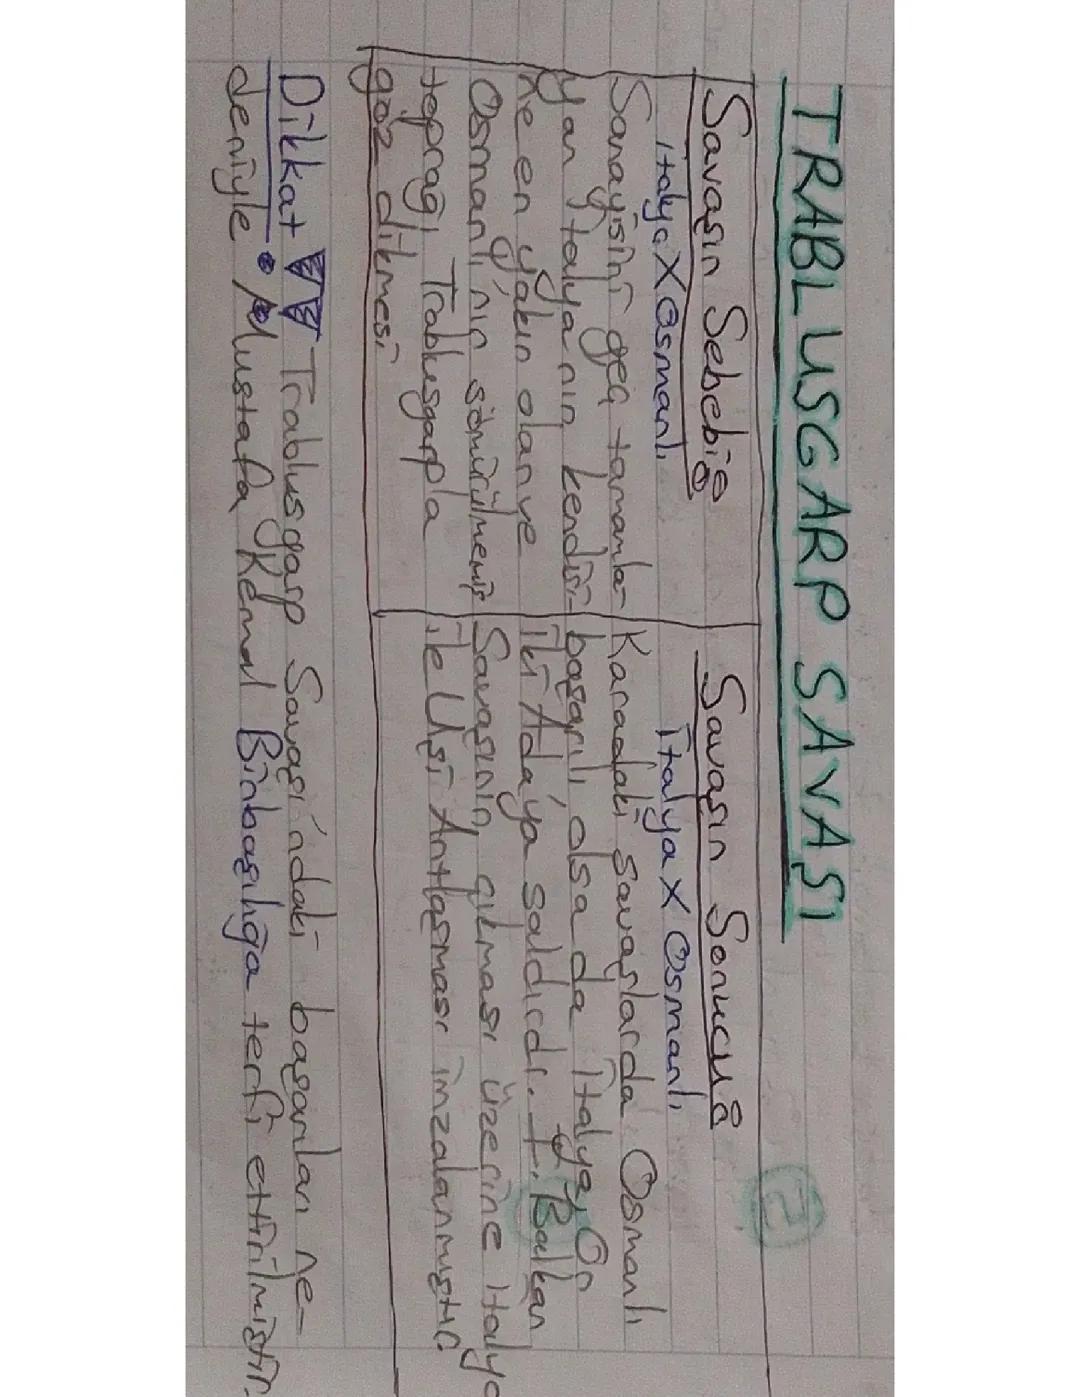 TRABLUSGARP SAVAŞI
2
Savaşın Sebebi:
İtalya X Osmanlı
Sanayisini geç tamamla-
yan İtalya'nın kendisi-
ne en yakın olan ve
Osmanlı'nın sömürülmemiş
toprağı Trablusgarp'a
göz dikmesi
Savaşın Sonucu:
İtalya X Osmanlı
Karadaki savaşlarda Osmanlı
başarılı olsa da İtalya, On
İki Ada'ya saldırdı. I. Balkan
Savaşının çıkması üzerine İtalya
ile Uşi Antlaşması imzalanmıştır
Dikkat Trablusgarp Savaşı'ndaki başarıları ne-
deniyle • Mustafa Kemal Binbaşılığa terfi ettirilmiştir.